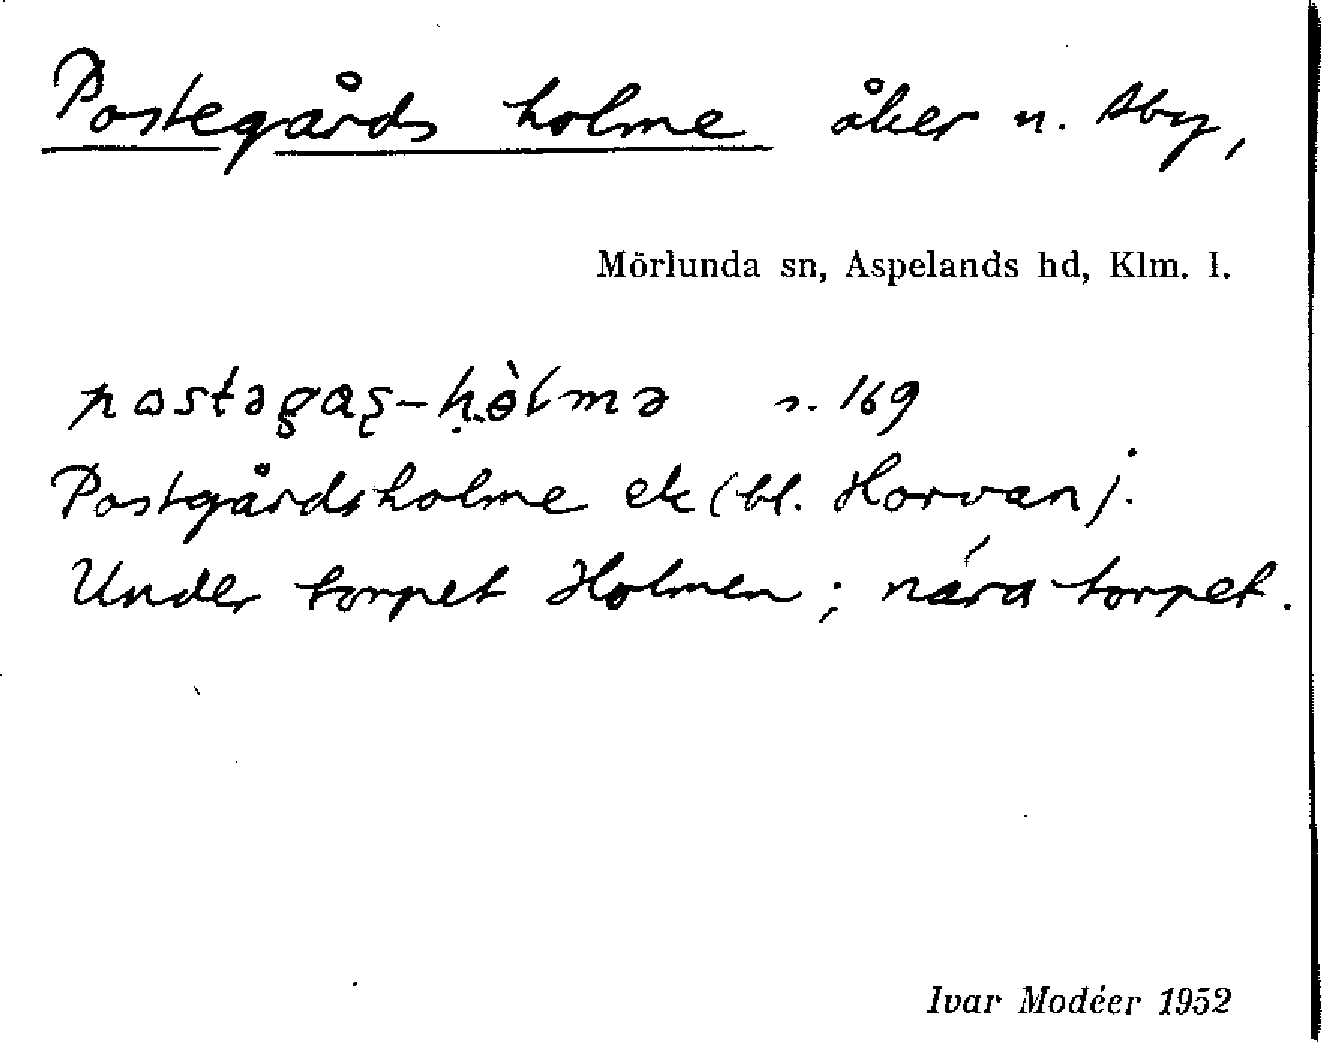 Postegårds holme åker u. Åby,
Mörlunda sn, Aspelands hd, Klm. l.
postəgaʂ-hòlmə s. 169
Postgårdsholme ek (bl. Horvan).
Under torpet Holmen; nära torpet.
Ivar Modéer 1952